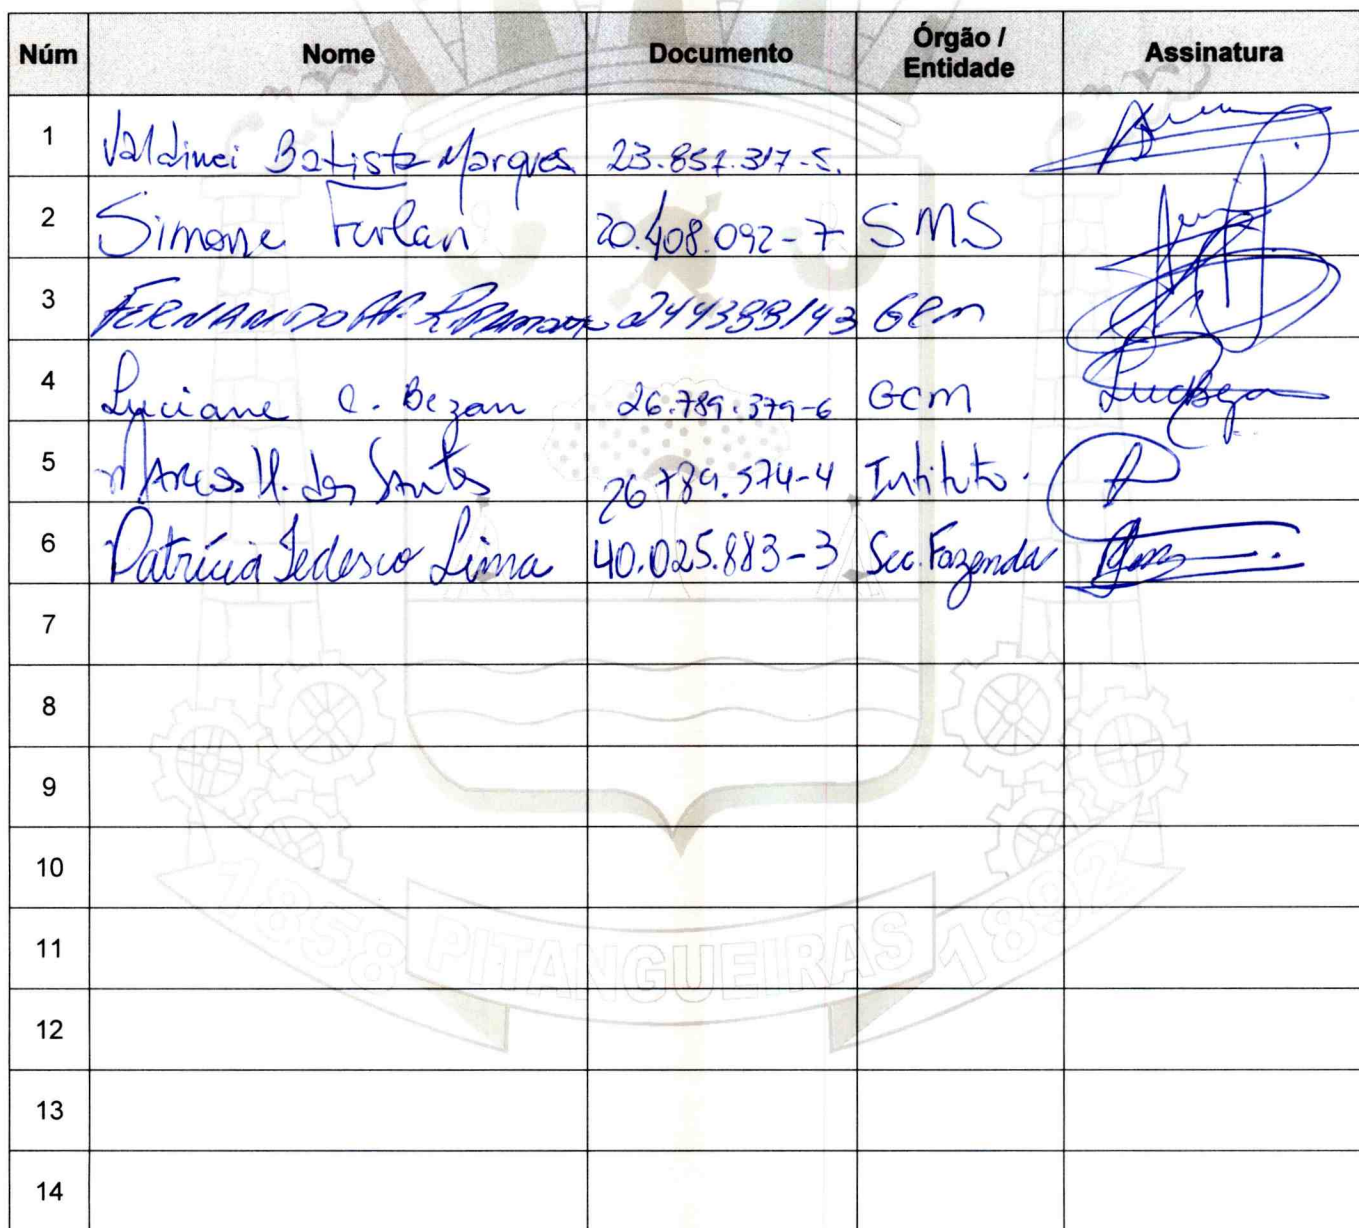 Núm Nome Documento Órgão / Entidade Assinatura
1 Valdinei Batista Marques 23.857.317-5.
2 Simone Furlan 20.408.092-7 SMS
3 FERNANDO AP. 244399143 GCM
4 Luciane C. Bezan 26.789.379-6 GCM
5 Marcos H. dos Santos 26789.574-4 Instituto.
6 Patrícia Tedesco Lima 40.025.883-3 Sec. Fazenda
7
8
9
10
11
12
13
14
1858 PITANGUEIRAS 1892